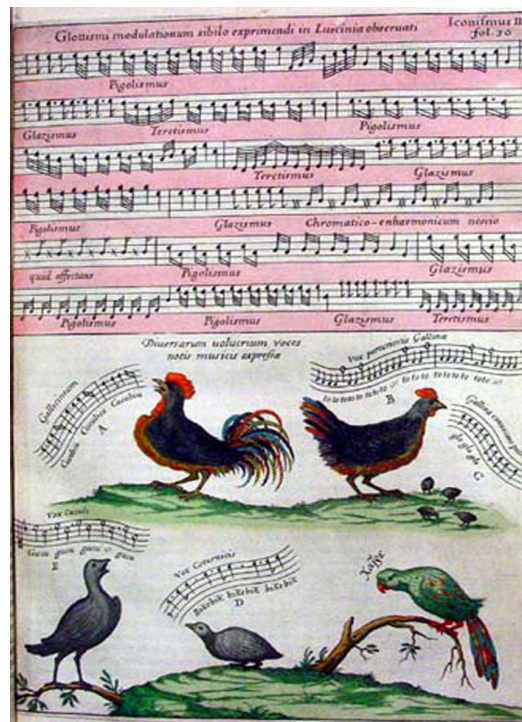 Glottismi modulationum sibilo exprimendi in Luscinia observati
Iconismus III
fol. 30
Pigolismus
Glazismus Teretismus Pigolismus
Teretismus Glazismus
Pigolismus Glazismus Chromatico-enharmonicum nescio
quid affectans Pigolismus Glazismus
Pigolismus Pigolismus Glazismus Teretismus
Diversarum volucrium voces
notis musicis expressa
Gallicinium
Cucubcu Cucubcu
A
Vox parturientis Gallinæ
to to to to to to to
B
Gallina
glo glo glo
C
Vox Cuculi
Gucu gucu gucu gucu
E
Vox Coturnicis
Bikebik bikebik bikebik
D
Χαῖρε